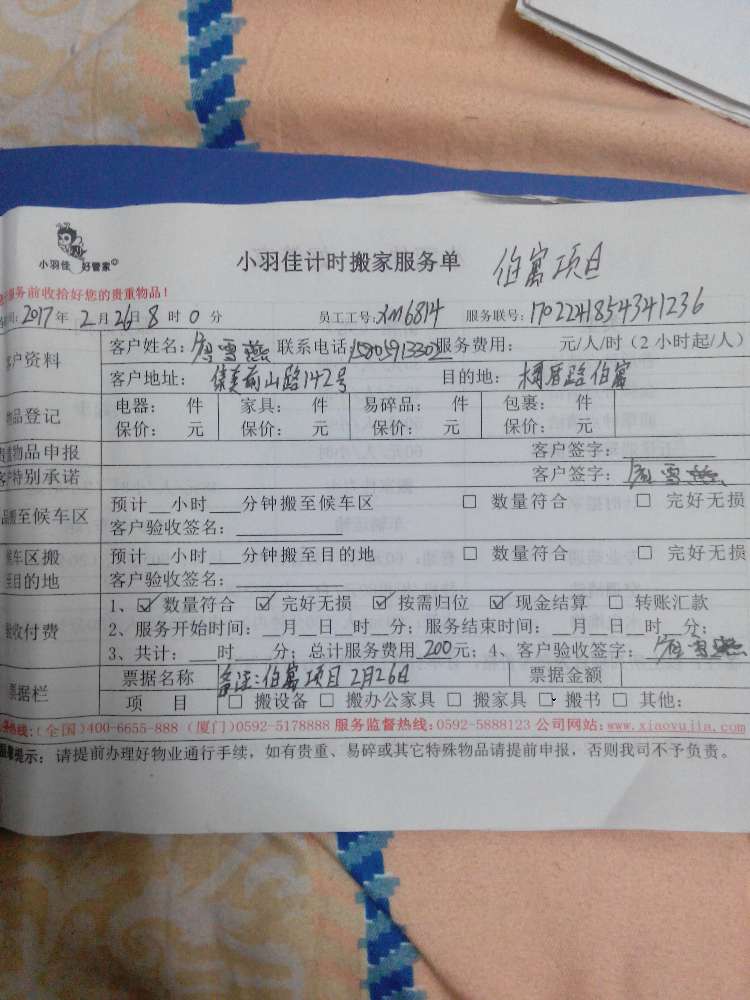 小羽佳 好管家
小羽佳计时搬家服务单 伯寓项目
服务前收拾好您的贵重物品!
时间: 2017年 2月26日8时0分 员工工号: xm6814 服务联号: 1702241854341236
客户资料 客户姓名: 雪燕 联系电话: 服务费用: 元/人/时(2小时起/人)
客户地址: 集美前山路142号 目的地: 路伯寓
物品登记 电器: 件 家具: 件 易碎品: 件 包裹: 件
保价: 元 保价: 元 保价: 元 保价: 元
贵重物品申报 客户签字:
客户特别承诺 客户签字: 雪燕
物品搬至候车区 预计__小时___分钟搬至候车区 □ 数量符合 □ 完好无损
客户验收签名:
候车区搬至目的地 预计__小时___分钟搬至目的地 □ 数量符合 □ 完好无损
客户验收签名:
验收付费 1、☑ 数量符合 ☑ 完好无损 ☑ 按需归位 ☑ 现金结算 □ 转账汇款
2、服务开始时间: __月__日__时__分; 服务结束时间: __月__日__时__分;
3、共计: ___时___分; 总计服务费用 200元; 4、客户验收签字: 雪燕
票据栏 票据名称 备注:伯寓项目2月26日 票据金额
项 目 □ 搬设备 □ 搬办公家具 □ 搬家具 □ 搬书 □ 其他:
热线:(全国)400-6655-888 (厦门)0592-5178888 服务监督热线:0592-5888123 公司网站:www.xiaoyujia.com
温馨提示: 请提前办理好物业通行手续,如有贵重、易碎或其它特殊物品请提前申报,否则我司不予负责。